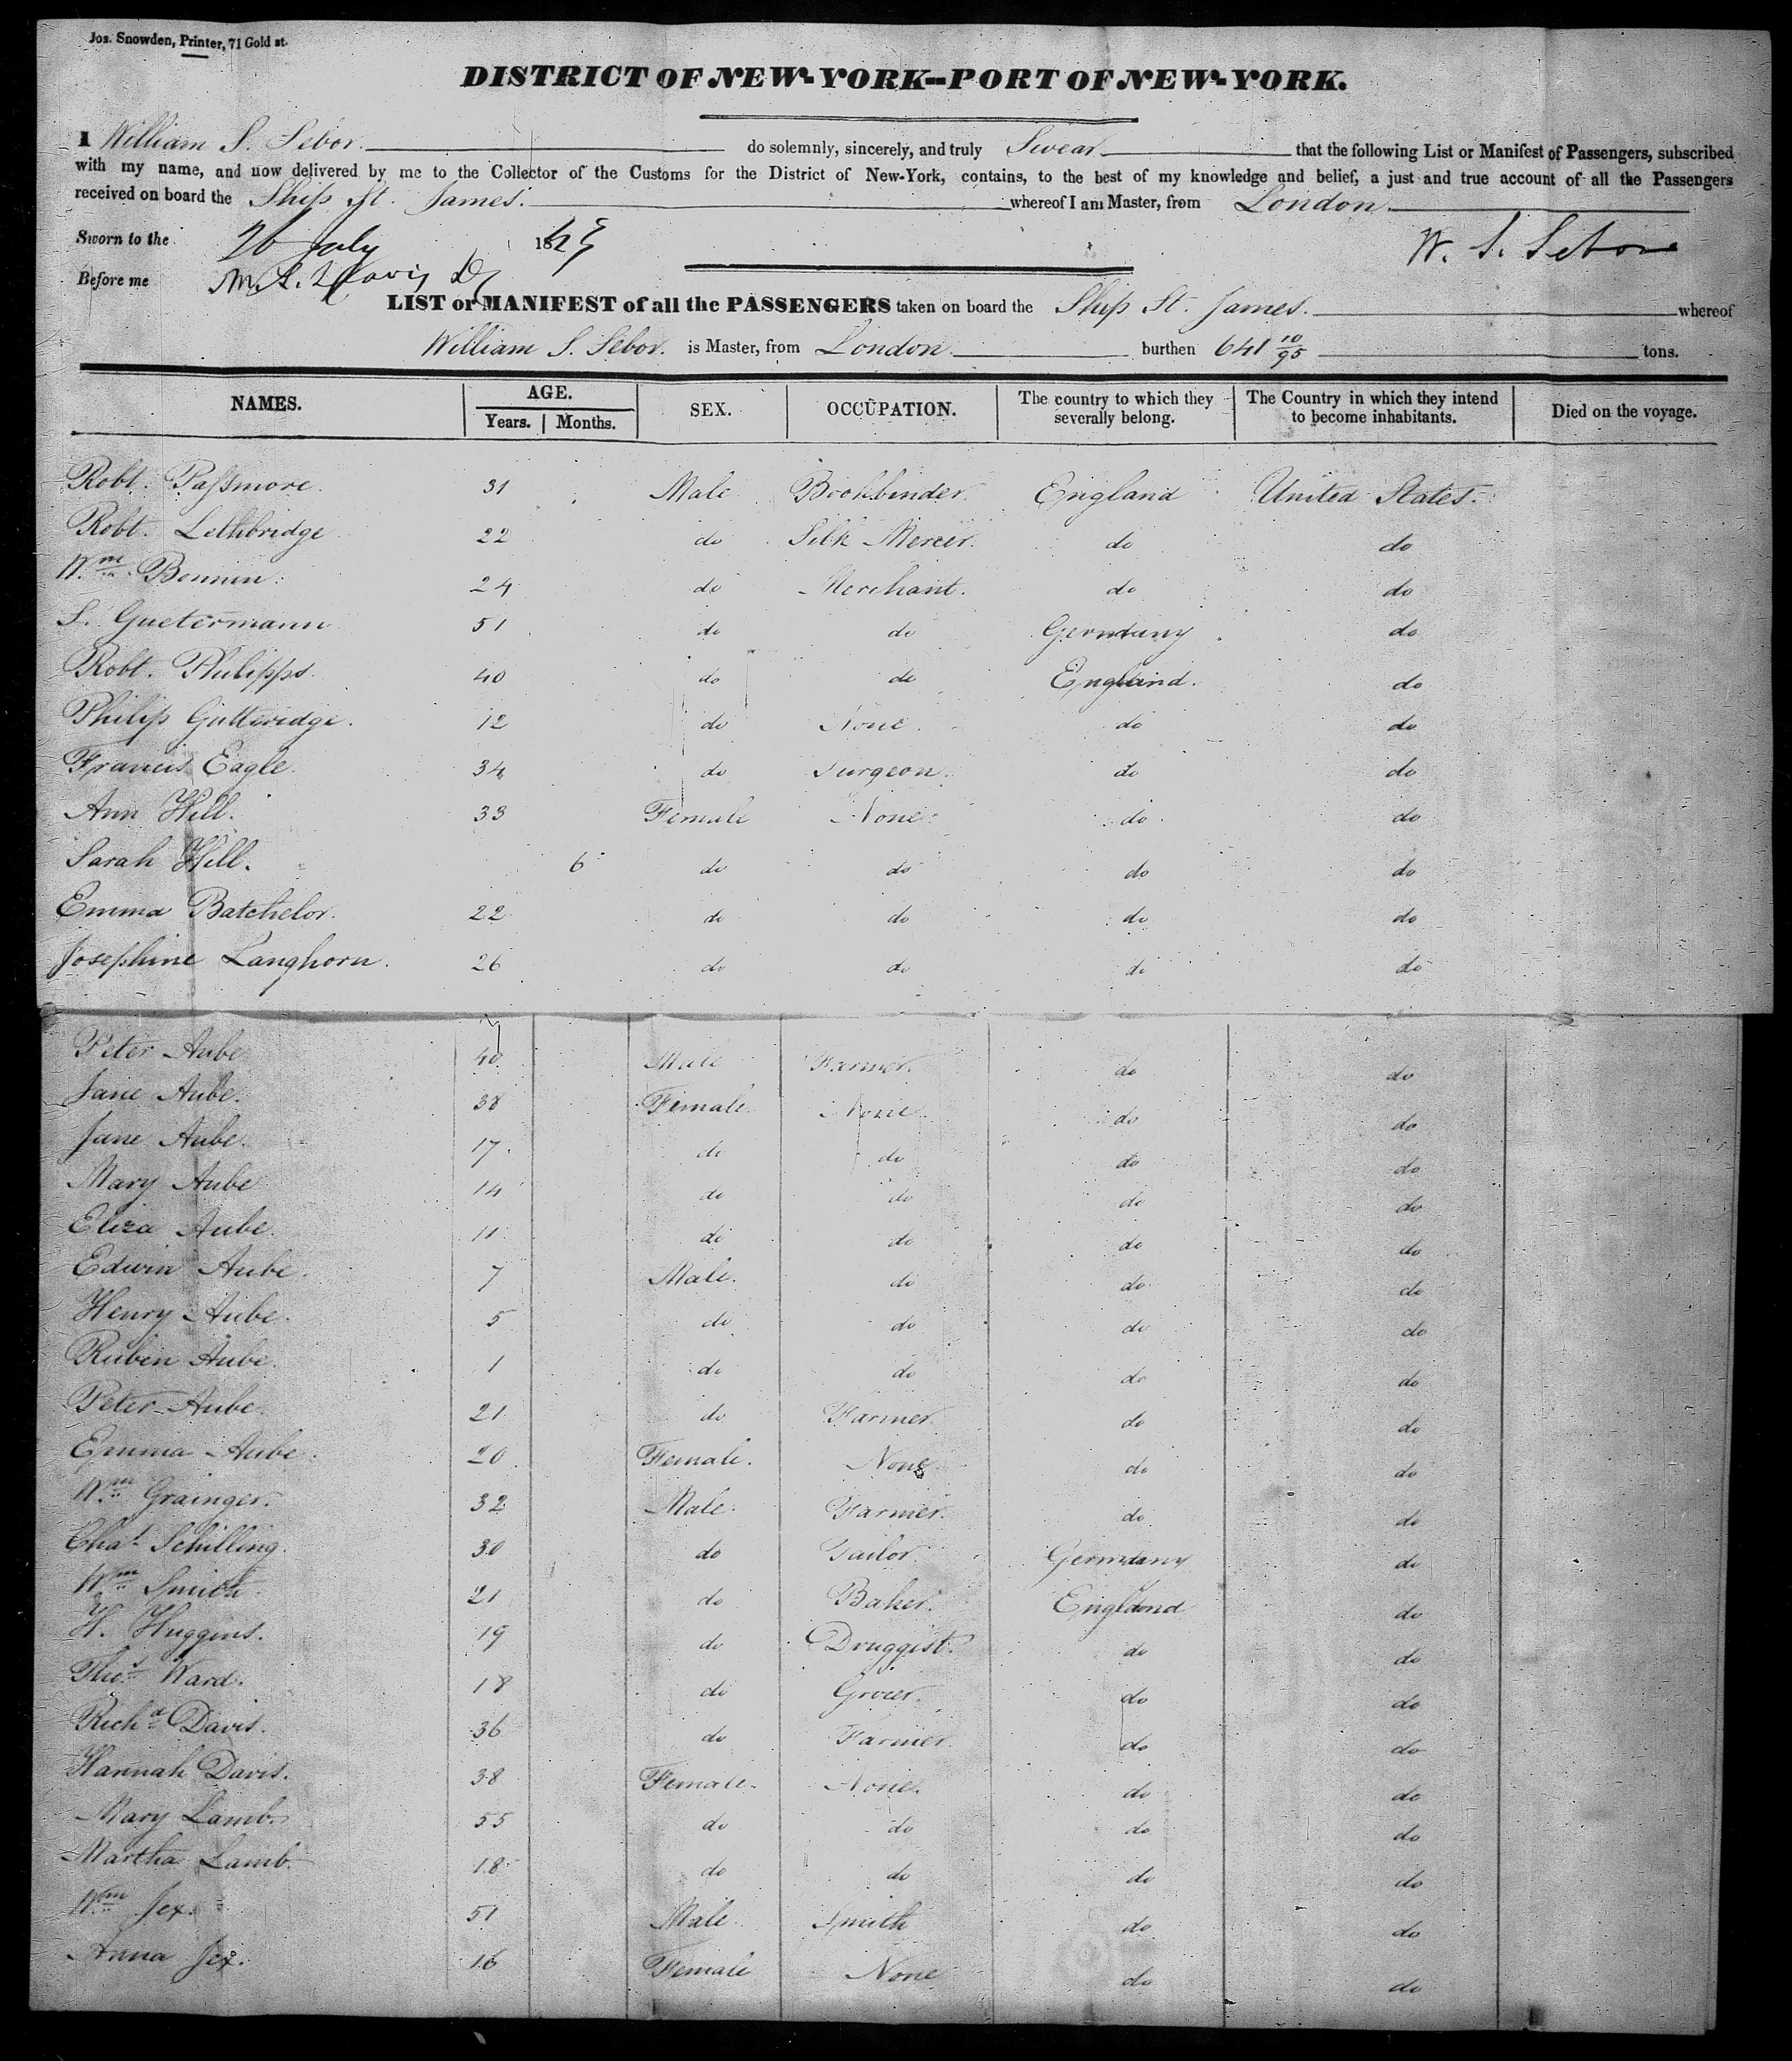 Jos. Snowden, Printer, 71 Gold st.
DISTRICT OF NEW-YORK--PORT OF NEW-YORK.
I William S. Sebor. do solemnly, sincerely, and truly Swear that the following List or Manifest of Passengers, subscribed
with my name, and now delivered by me to the Collector of the Customs for the District of New-York, contains, to the best of my knowledge and belief, a just and true account of all the Passengers
received on board the Ship St. James. whereof I am Master, from London.
Sworn to the 26 July 184 W. S. Sebor
Before me
LIST or MANIFEST of all the PASSENGERS taken on board the Ship St. James. whereof
William S. Sebor. is Master, from London. burthen 641 10/95 tons.
NAMES. AGE. Years. Months. SEX. OCCUPATION. The country to which they severally belong. The Country in which they intend to become inhabitants. Died on the voyage.
Robt. Passmore. 31 Male Bookbinder. England United States.
Robt. Lethbridge 22 do Silk Mercer. do do
Wm. Bennin. 24 do Merchant. do do
S. Guetermann 51 do do Germany do
Robt. Philipps. 40 do do England. do
Philip Gutteridge. 12 do None. do do
Francis Eagle. 34 do Surgeon. do do
Ann Hill. 33 Female None. do do
Sarah Hill. 6 do do do do
Emma Batchelor. 22 do do do do
Josephine Langhorn. 26 do do do do
Peter Aube 40 Male Farmer. do do
Jane Aube. 38 Female None. do do
Jane Aube. 17. do do do do
Mary Aube 14 do do do do
Eliza Aube. 11 do do do do
Edwin Aube. 7 Male. do do do
Henry Aube. 5 do do do do
Ruben Aube. 1 do do do do
Peter Aube. 21 do Farmer. do do
Emma Aube. 20 Female. None do do
Wm. Grainger. 32 Male. Farmer. do do
Chas. Schilling. 30 do Tailor. Germany do
Wm. Smith. 21 do Baker. England do
H. Huggins. 19 do Druggist. do do
Thos. Ward. 18 do Grocer. do do
Richd. Davis. 36 do Farmer. do do
Hannah Davis. 38 Female. None. do do
Mary Lamb. 55 do do do do
Martha Lamb. 18 do do do do
Wm. Jex. 51 Male. Smith do do
Anna Jex. 16 Female None do do